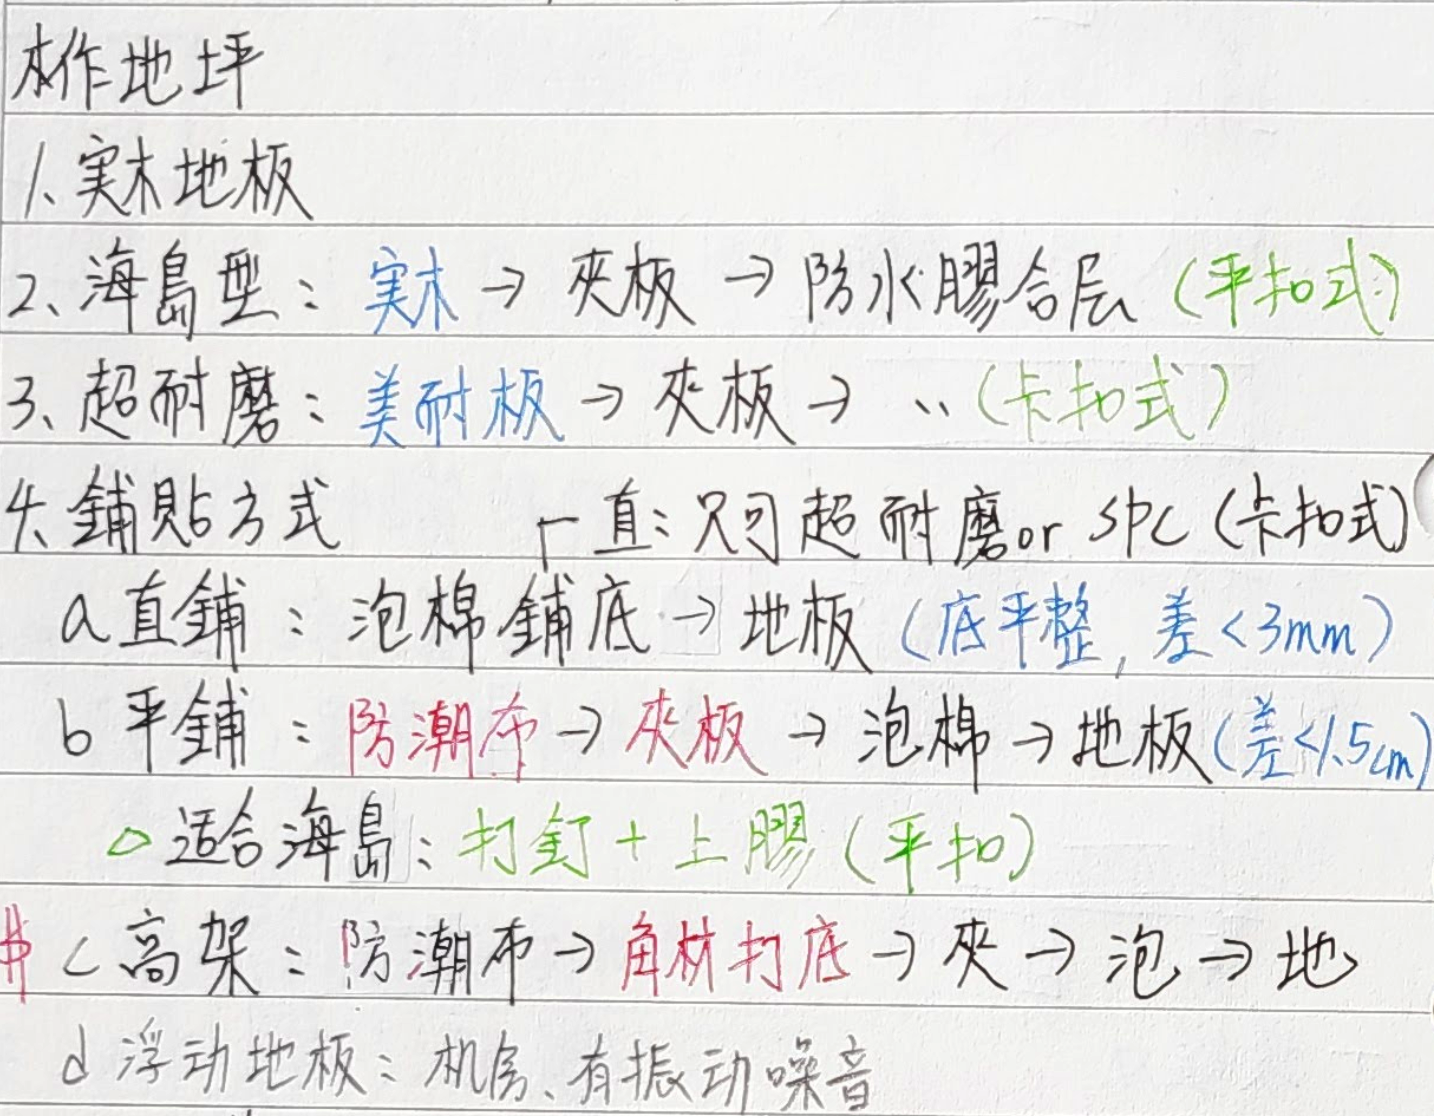 木作地坪
1、実木地板
2、海島型：実木→夾板→防水膠合层（平扣式）
3、超耐磨：美耐板→夾板→〃（卡扣式）
4、鋪貼方式
┌直：只可超耐磨or SPC（卡扣式）
a 直鋪：泡棉鋪底→地板（底平整，差<3mm）
b 平鋪：防潮布→夾板→泡棉→地板（差<1.5cm）
△适合海島：打釘+上膠（平扣）
c 高架：防潮布→角材打底→夾→泡→地
d 浮动地板：机房、有振动噪音